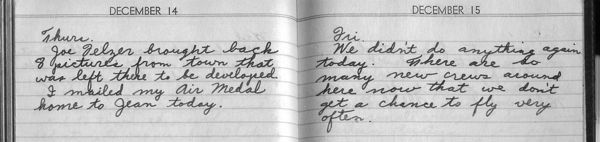 DECEMBER 14
Thurs.
Joe Zelzer brought back
8 pictures from town that
was left there to be developed.
I mailed my Air Medal
home to Jean today.
DECEMBER 15
Fri.
We didn't do anything again
today. There are so
many new crews around
here now that we don't
get a chance to fly very
often.